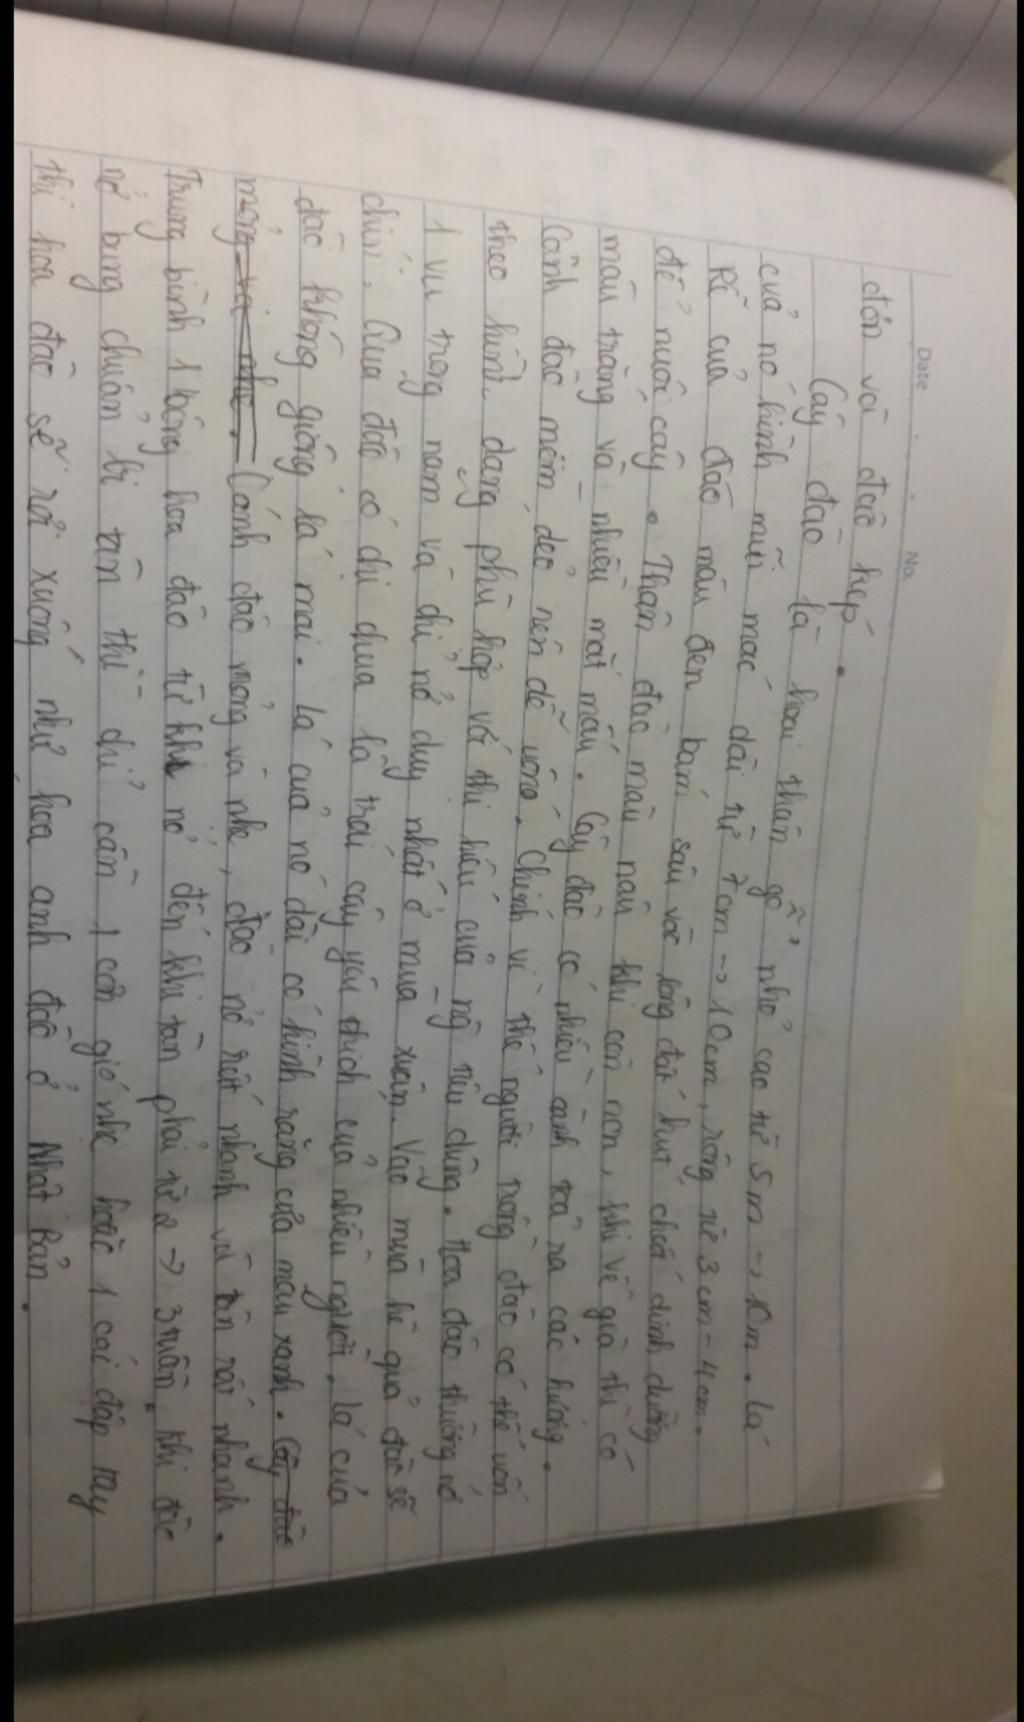 Date
No.
đón và đào kép.
Cây đào là hoài thân gỗ nhỏ cao từ 5m → 10m. lá
của nó hình mũi mác dài từ 7cm → 10cm, rộng từ 3cm - 4cm.
Rễ của đào màu đen bám sâu vào lòng đất hút chất dinh dưỡng
để nuôi cây. Thân đào màu nâu khi còn non, khi về già thì có
màu trắng và nhiều mắt mấu. Cây đào có nhiều cành toả ra các hướng.
Cành đào mềm dẻo nên dễ uống. Chính vì thế người trồng đào có thể uốn
theo hình dạng phù hợp với thi hiếu của ng tiêu dùng. Hoa đào thường nở
1 vụ trong năm và chỉ nở duy nhất ở mùa xuân. Vào mùa hè quả đào sẽ
chín. Quả đào có chị chua là trái cây yêu thích của nhiều người. lá của
đào không giống lá mai. lá của nó dài có hình răng cưa màu xanh. Cây đào
mỏng và nhẹ. Cánh đào mỏng và nhẹ, đào nở rất nhanh và tàn rất nhanh.
Trung bình 1 bông hoa đào từ khi nở đến khi tàn phải từ 2 → 3 tuần. khi đào
nở bung chuẩn bị tàn thì chỉ cần 1 cơn gió nhẹ hoặc 1 cái đập tay
thì hoa đào sẽ rơi xuống như hoa anh đào ở Nhật Bản.